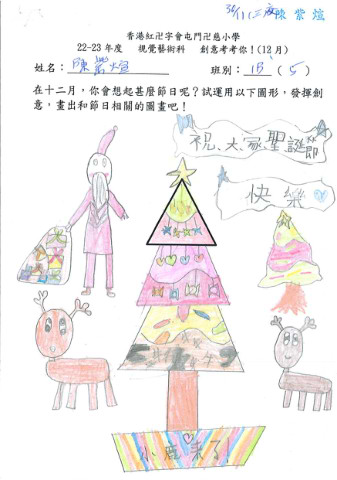 陳紫煊
香港紅卍字會屯門卍慈小學
22-23年度 視覺藝術科 創意考考你!(12月)
姓名: 陳紫煊 班別: 1B (5)
在十二月,你會想起甚麼節日呢?試運用以下圖形,發揮創
意,畫出和節日相關的圖畫吧!
祝大家聖誕節
快樂
小鹿來了